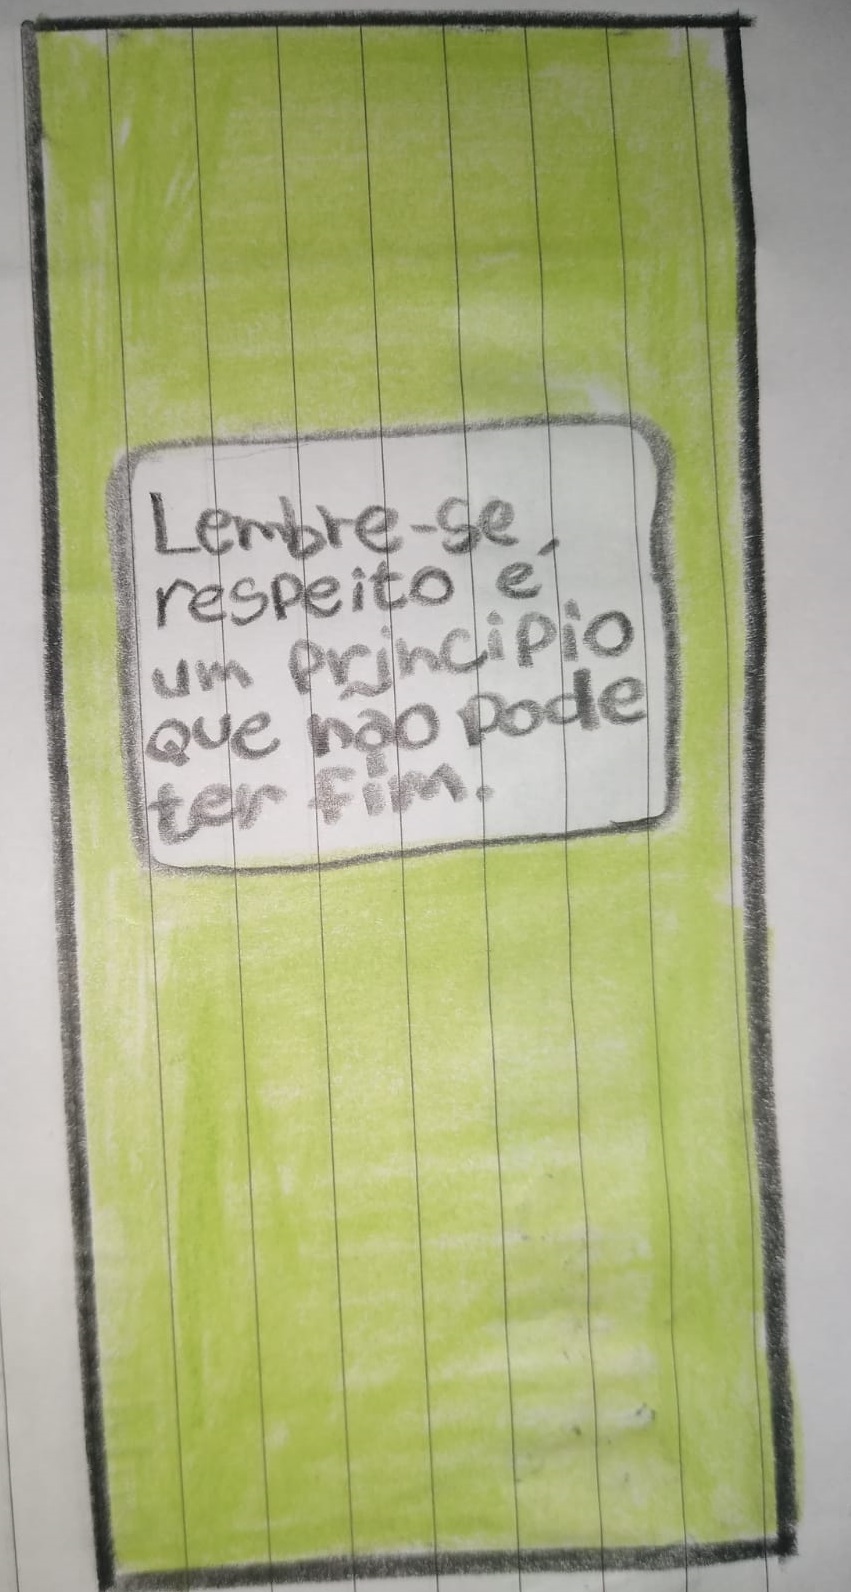 Lembre-se,
respeito é
um principio
que não pode
ter fim.